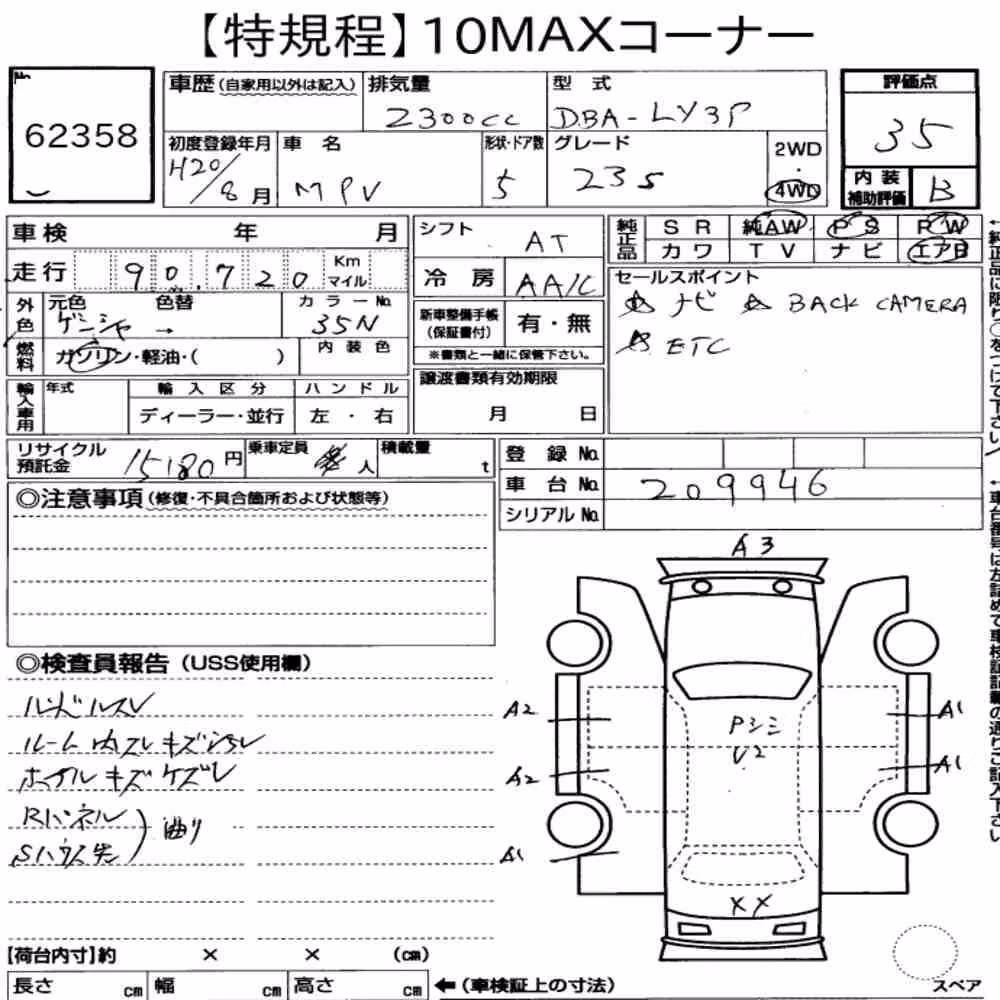 【特規程】10MAXコーナー
No
62358
車歴 (自家用以外は記入) 排気量 型式
2300cc DBA-LY3P
評価点
35
初度登録年月 車名 形状・ドア数 グレード 2WD・4WD
H20/8月 MPV 5 23S
内装補助評価 B
車検 年 月
走行 90.720 Km マイル
外色 元色 色替 カラーNo.
ゲンシャ → 35N
燃料 ガソリン・軽油・( ) 内装色
輸入車用 年式 輸入区分 ハンドル
ディーラー・並行 左・右
シフト AT
冷房 AA/C
新車整備手帳(保証書付) 有・無
※書類と一緒に保管下さい。
譲渡書類有効期限
月 日
純正品 SR 純AW PS PW
カワ TV ナビ エアB
セールスポイント
☆ナビ ☆BACK CAMERA
☆ETC
←純正品に限り○をつけて下さい
リサイクル預託金 15180円 乗車定員 人 積載量 t
登録No.
車台No. 209946
シリアルNo.
←車台番号は左詰めで車検証記載の通りご記入下さい
◎注意事項(修復・不具合箇所および状態等)
◎検査員報告(USS使用欄)
ハンドルスレ
ルーム内スレキズ
キズケズレ
Rパネル
Sハウス先
曲り
A3
A2
A1
Pシミ
V2
A2
A1
A1
XX
【荷台内寸】約 × × (cm)
長さ cm 幅 cm 高さ cm ←(車検証上の寸法)
スペア